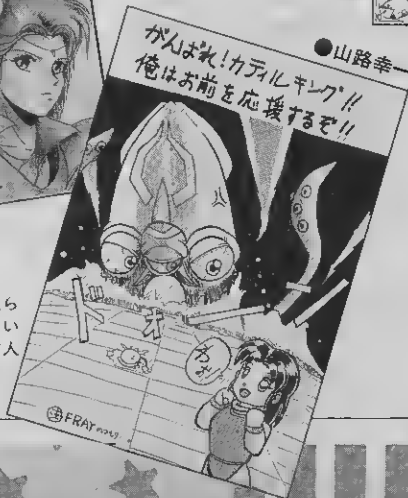 ●山路幸一
がんばれ！カティルキング!!
俺はお前を応援するぞ!!
ドォ
FRAY
らい人